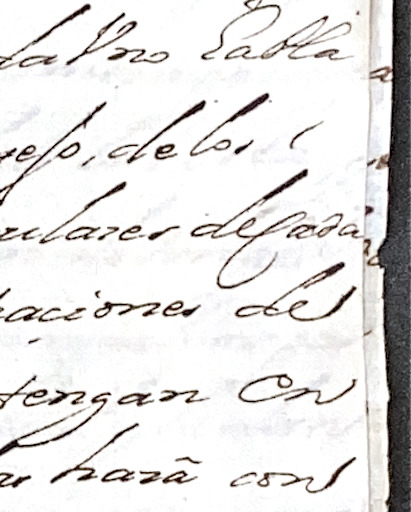 da Vno Tabla
, de los
ulares de Cada
aciones de
tengan en
hará con